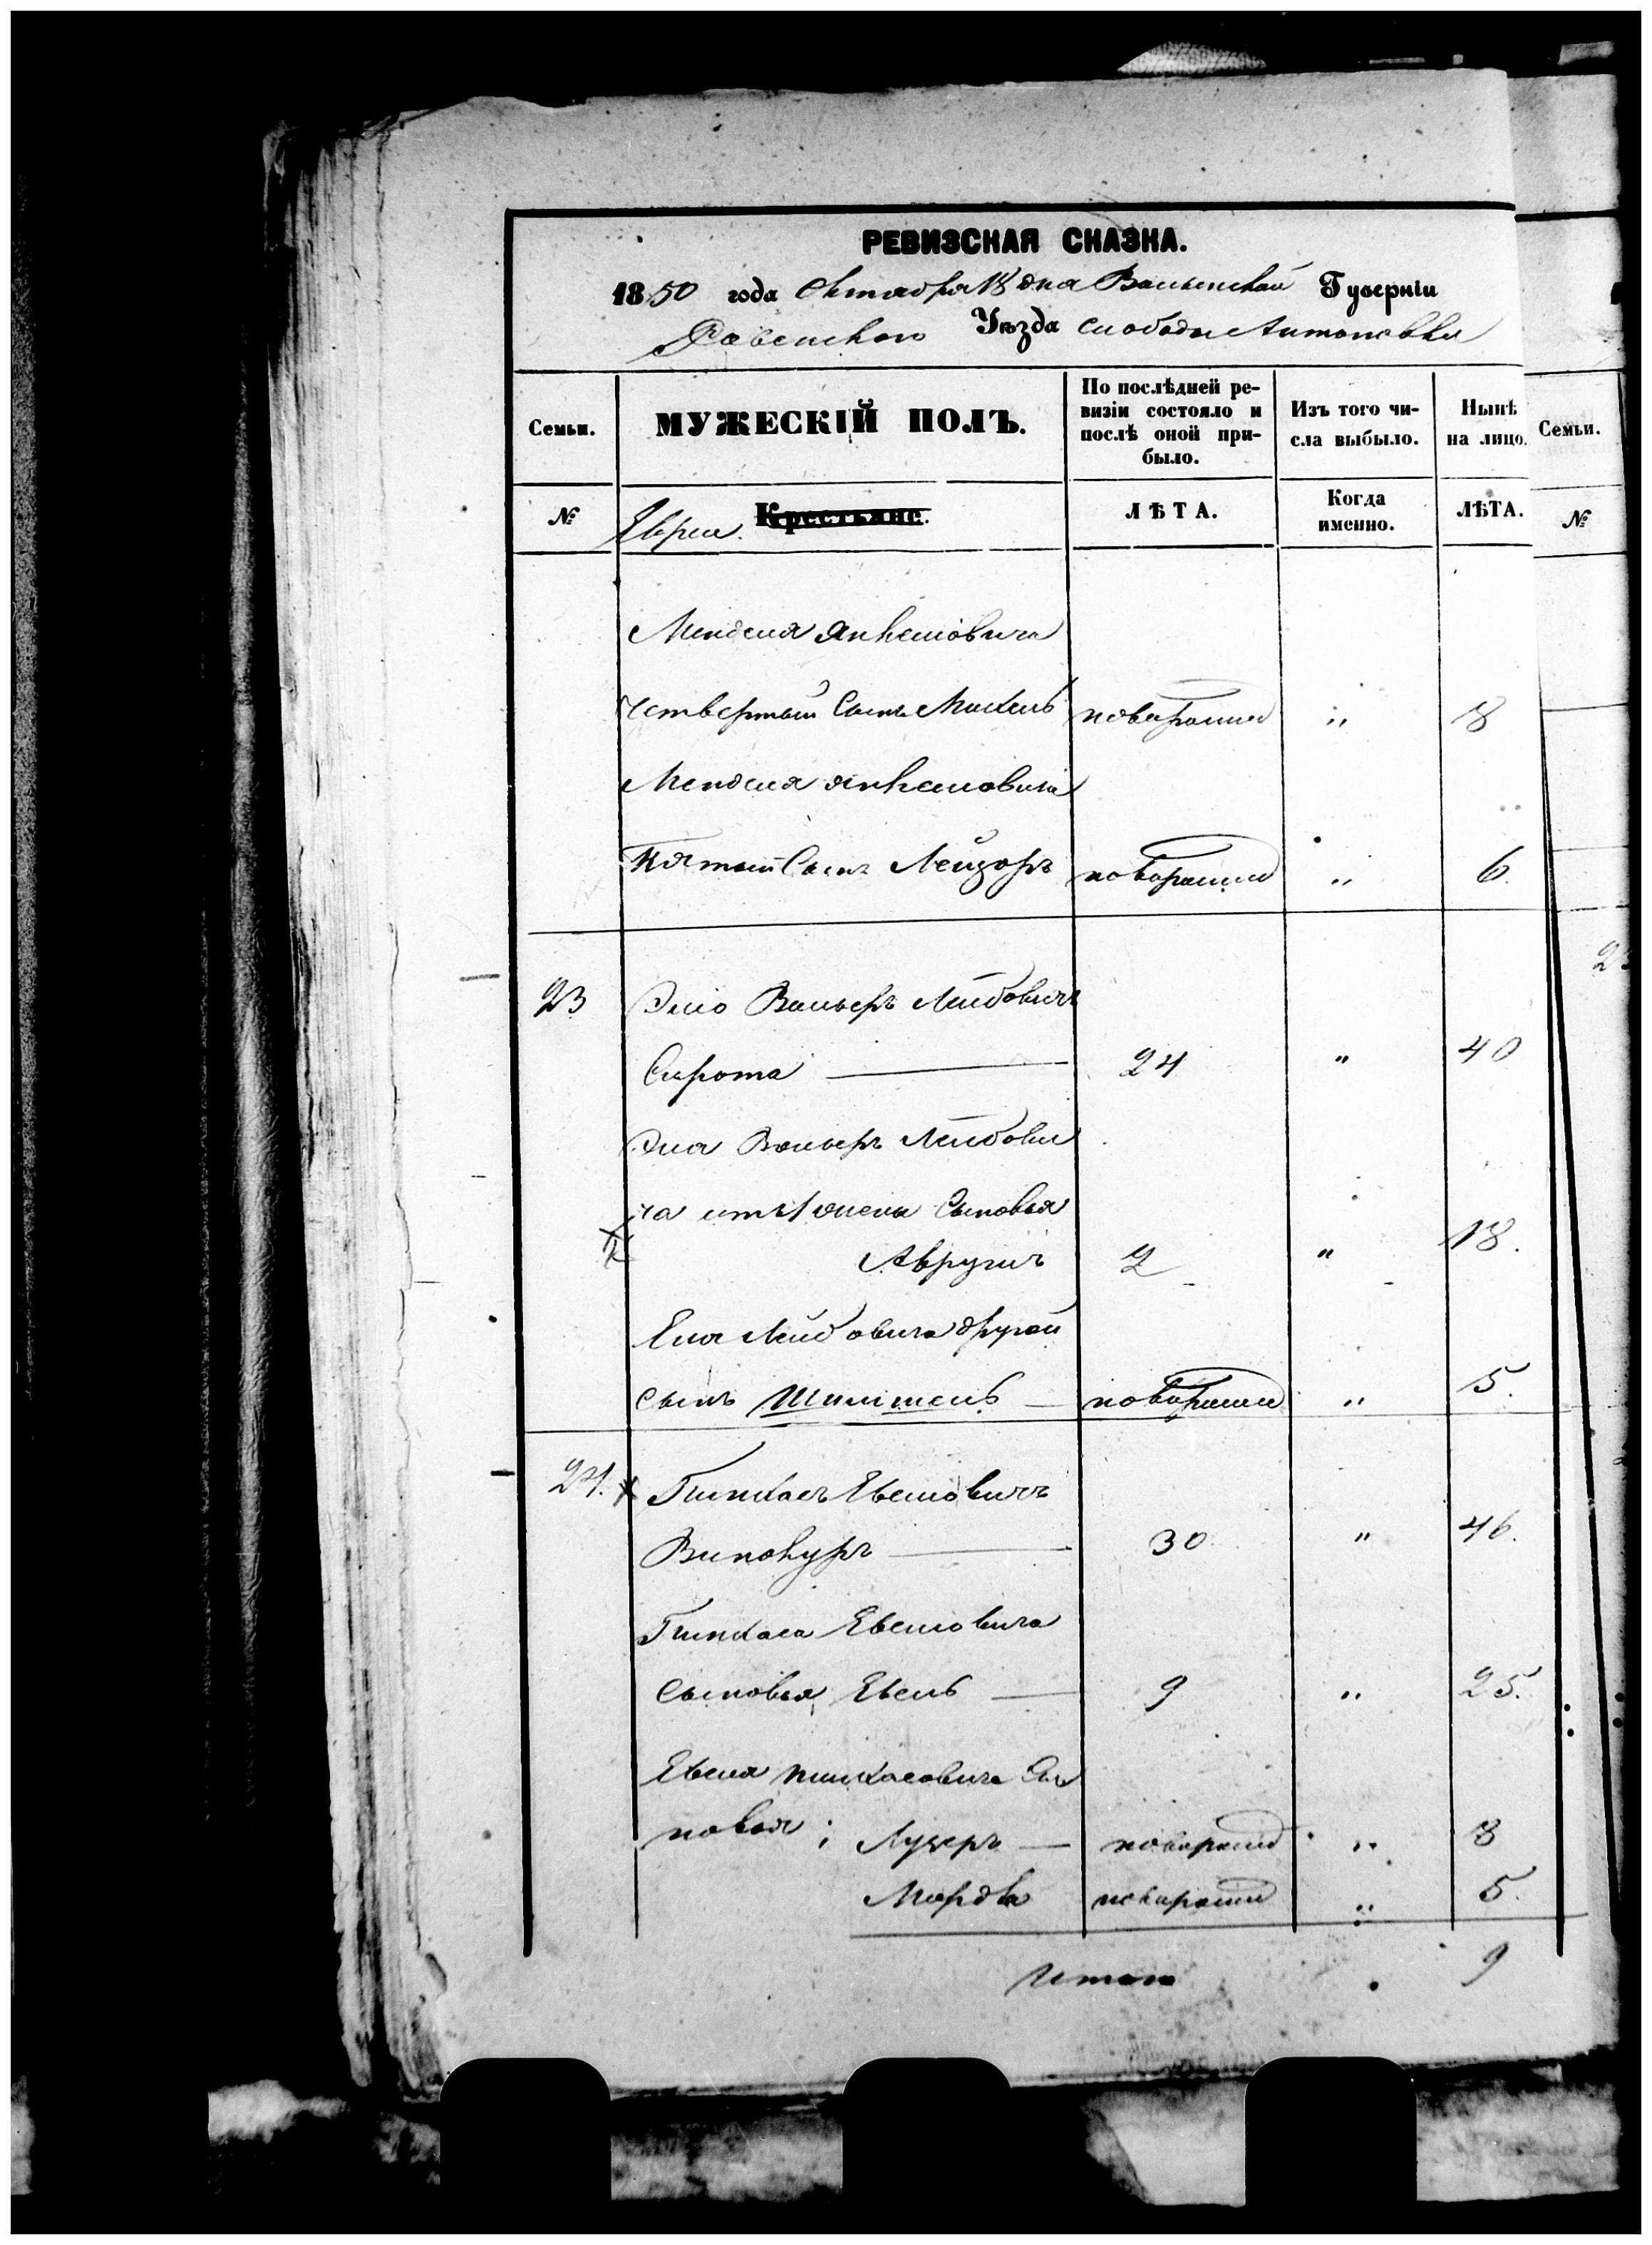 РЕВИЗСКАЯ СКАЗКА.
1850 года Октября 18 дня Волынской Губерніи
Ровенского Уѣзда слободы Антоновки
Семьи.
МУЖЕСКІЙ ПОЛЪ.
По послѣдней ре-
визіи состояло и
послѣ оной при-
было.
Изъ того чи-
сла выбыло.
Нынѣ
на лицо.
Семьи.
№
Евреи. Крестьяне.
ЛѢТА.
Когда
именно.
ЛѢТА.
№
Менделя Янкелёвича
четвертый Сынъ новорожд „ 8
Менделя Янкелёвича
Пятый Сынъ Лейзоръ новорожд „ 6.
23 Эліо Вольфъ Лейбовичъ
Сирота — 24 „ 40
Эліа Вольфъ Лейбови
ча отъ 1 жены Сыновья
Аврумъ 2 „ 18.
Еліа Лейбовича другой
сынъ — новорожд „ 5.
24. Пинхасъ Евелювичъ
Винокуръ — 30 „ 46.
Пинхаса Евелювича
Сыновья, Евель — 9 „ 25.
Евеля Пинхасовича Сы
новья; Лузеръ — новорожд „ 8
новорожд „ 5.
Итого 9